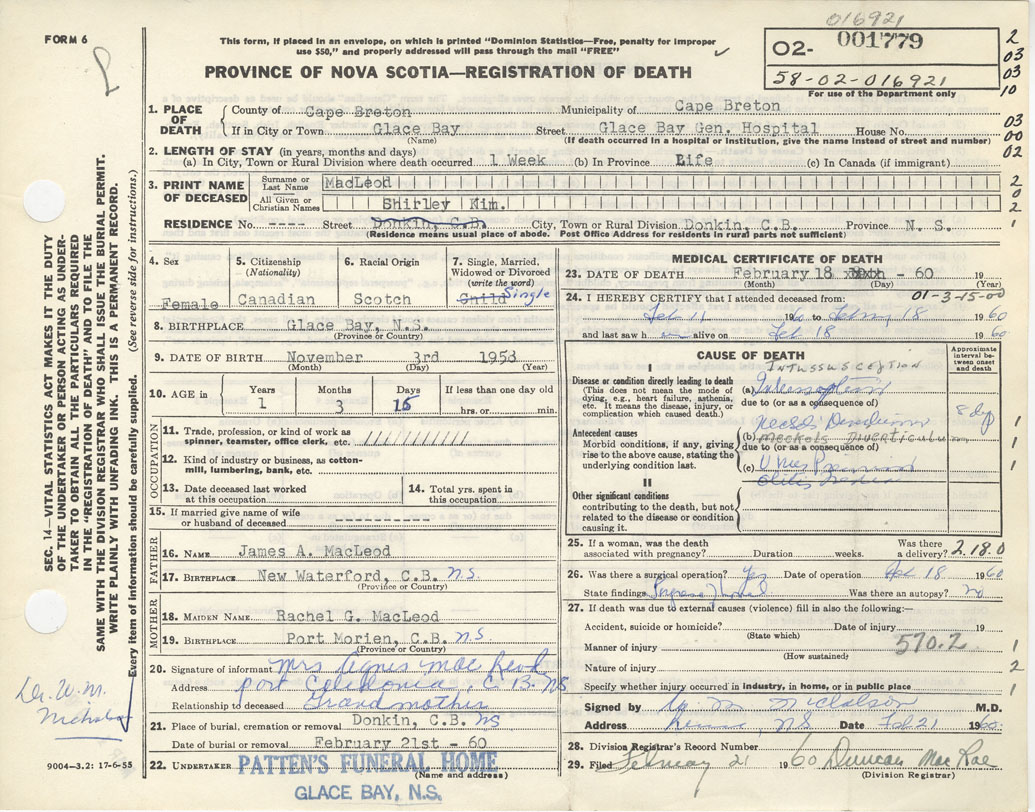 016921
FORM 6
This form, if placed in an envelope, on which is printed "Dominion Statistics—Free, penalty for improper
use $50," and properly addressed will pass through the mail "FREE"
02- 001779
58-02-016921
For use of the Department only
PROVINCE OF NOVA SCOTIA—REGISTRATION OF DEATH
2
03
03
10
03
00
02
2
0
2
1
1. PLACE OF DEATH
County of Cape Breton Municipality of Cape Breton
If in City or Town Glace Bay Street Glace Bay Gen. Hospital House No.
(Name) (If death occurred in a hospital or institution, give the name instead of street and number)
2. LENGTH OF STAY (in years, months and days)
(a) In City, Town or Rural Division where death occurred 1 Week (b) In Province Life (c) In Canada (if immigrant)
3. PRINT NAME OF DECEASED
Surname or Last Name MacLeod
All Given or Christian Names Shirley Kim.
RESIDENCE No. ---- Street Donkin, C.B. City, Town or Rural Division Donkin, C.B. Province N. S.
(Residence means usual place of abode. Post Office Address for residents in rural parts not sufficient)
4. Sex
Female
5. Citizenship
(Nationality)
Canadian
6. Racial Origin
Scotch
7. Single, Married,
Widowed or Divorced
(write the word)
Child Single
8. BIRTHPLACE Glace Bay, N.S.
(Province or Country)
9. DATE OF BIRTH November 3rd 1958
(Month) (Day) (Year)
10. AGE in
Years Months Days If less than one day old
1 3 15 hrs. or min.
OCCUPATION
11. Trade, profession, or kind of work as
spinner, teamster, office clerk, etc.
12. Kind of industry or business, as cotton-
mill, lumbering, bank, etc.
13. Date deceased last worked
at this occupation
14. Total yrs. spent in
this occupation
15. If married give name of wife
or husband of deceased ----------
FATHER
16. NAME James A. MacLeod
17. BIRTHPLACE New Waterford, C.B. NS.
(Province or Country)
MOTHER
18. MAIDEN NAME Rachel G. MacLeod
19. BIRTHPLACE Port Morien, C.B. NS
(Province or Country)
20. Signature of informant Mrs Agnes MacLeod
Address Port Caledonia, C.B. NS
Relationship to deceased Grandmother
21. Place of burial, cremation or removal Donkin, C.B. NS
Date of burial or removal February 21st - 60
22. UNDERTAKER PATTEN'S FUNERAL HOME
(Name and address)
GLACE BAY, N.S.
MEDICAL CERTIFICATE OF DEATH
23. DATE OF DEATH February 18 - 60 19
(Month) (Day) (Year)
01-3-15-00
24. I HEREBY CERTIFY that I attended deceased from:
Feb 11 1960 to Feb 18 1960
and last saw h alive on Feb 18 1960
CAUSE OF DEATH
Approximate interval between onset and death
I
INTUSSUSCEPTION
Disease or condition directly leading to death
(This does not mean the mode of
dying, e.g., heart failure, asthenia,
etc. It means the disease, injury, or
complication which caused death.)
(a) Intussusception
due to (or as a consequence of)
Meckels Diverticulum
Antecedent causes
Morbid conditions, if any, giving
rise to the above cause, stating the
underlying condition last.
(b) Meckels Diverticulum
due to (or as a consequence of)
(c)
II
Other significant conditions
contributing to the death, but not
related to the disease or condition
causing it.
1
1
1
25. If a woman, was the death
associated with pregnancy? Duration weeks.
Was there
a delivery? 2.18.0
26. Was there a surgical operation? Yes Date of operation Feb 18 1960
State findings Was there an autopsy? no
27. If death was due to external causes (violence) fill in also the following:—
Accident, suicide or homicide? Date of injury 19
(State which)
Manner of injury 570.2
(How sustained)
Nature of injury
Specify whether injury occurred in industry, in home, or in public place
1
2
1
Signed by M.D.
Address NS Date Feb 21 1960
28. Division Registrar's Record Number
29. Filed February 21 1960 Duncan MacRae
(Division Registrar)
SEC. 14—VITAL STATISTICS ACT MAKES IT THE DUTY
OF THE UNDERTAKER OR PERSON ACTING AS UNDER-
TAKER TO OBTAIN ALL THE PARTICULARS REQUIRED
IN THE "REGISTRATION OF DEATH" AND TO FILE THE
SAME WITH THE DIVISION REGISTRAR WHO SHALL ISSUE THE BURIAL PERMIT.
WRITE PLAINLY WITH UNFADING INK. THIS IS A PERMANENT RECORD.
Every item of information should be carefully supplied. (See reverse side for instructions.)
Dr. W. M.
9004—3.2: 17-6-55